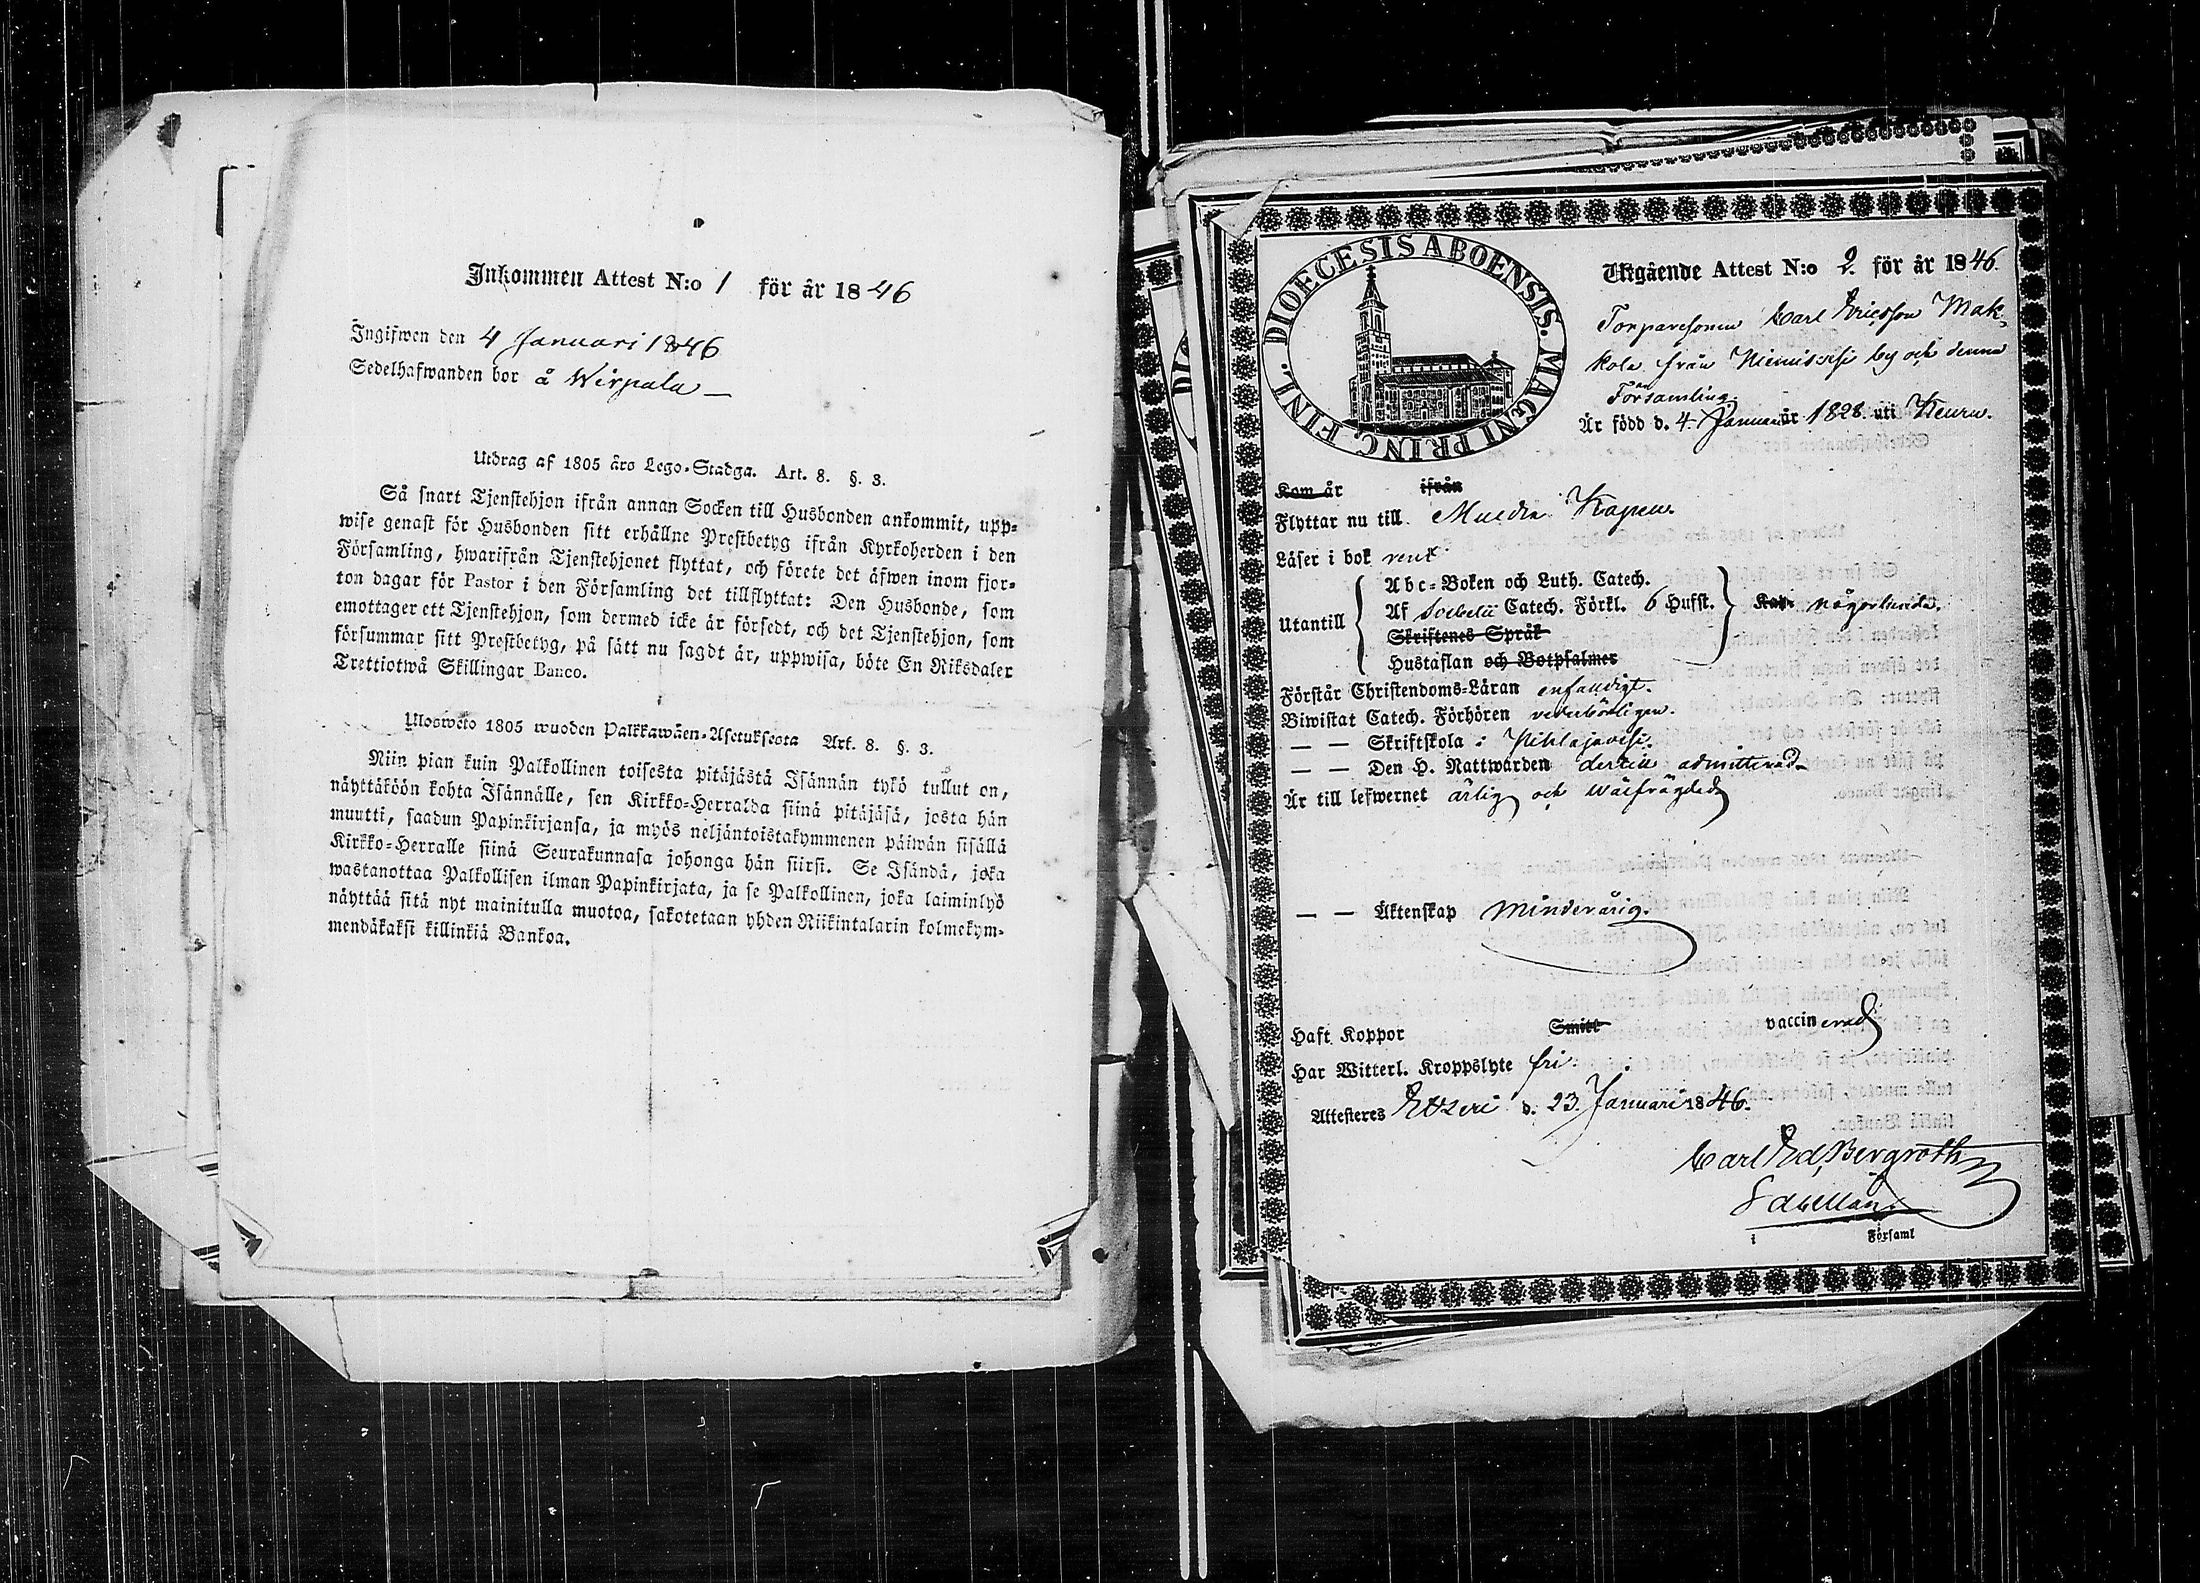 Inkommen Attest N:o 1 för år 1846
Ingifwen den 4 Januari 1846
Sedelhafwanden bor å Wirpala
Utdrag af 1805 års Lego-Stadga. Art. 8. §. 3.
Så snart Tjenstehjon ifrån annan Socken till Husbonden ankommit, upp-
wise genast för Husbonden sitt erhållne Prestbetyg ifrån Kyrkoherden i den
Församling, hwarifrån Tjenstehjonet flyttat, och förete det äfwen inom fjor-
ton dagar för Pastor i den Församling det tillflyttat: Den Husbonde, som
emottager ett Tjenstehjon, som dermed icke är försedt, och det Tjenstehjon, som
försummar sitt Prestbetyg, på sätt nu sagdt är, uppwisa, böte En Riksdaler
Trettiotwå Skillingar Banco.
Ulosweto 1805 wuoden Palkkawäen-Asetuksesta Art. 8. §. 3.
Niin pian kuin Palkollinen toisesta pitäjästä Isännän tykö tullut on,
näyttäköön kohta Isännälle, sen Kirkko-Herralda siinä pitäjäsä, josta hän
muutti, saadun Papinkirjansa, ja myös neljäntoistakymmenen päiwän sisällä
Kirkko-Herralle siinä Seurakunnasa johonga hän siirsi. Se Isändä, joka
wastanottaa Palkollisen ilman Papinkirjata, ja se Palkollinen, joka laiminlyö
näyttää sitä nyt mainitulla muotoa, sakotetaan yhden Riikintalarin kolmekym-
mendäkaksi killinkiä Bankoa.
DIOECESIS ABOENSIS. MAGNI PRINC. FINL.
Utgående Attest N:o 2. för år 1846.
Torparesonen Carl Ericsson Mak-
kola från Niemisvesi by och denna
Församling.
Är född d. 4. Januari år 1828. uti Keuru.
Kom år ifrån
Flyttar nu till Muldia Kapell
Läser i bok rent
Abc-Boken och Luth. Catech.
Utantill Af Svebelii Catech. Förkl. 6 Hufst. Kap. någorlunda.
Skriftenes Språk
Hustaflan och Botpsalmer
Förstår Christendoms-Läran enfaldigt.
Biwistat Catech. Förhören vederbörligen.
— — Skriftskola i Pihlajavesi.
— — Den H. Nattwarden dertill admitterad
Är till lefwernet ärlig och wälfrägdad
— — Äktenskap Minderårig.
Haft Koppor Smitt vaccinerad
Har Witterl. Kroppslyte fri.
Attesteres Etseri d. 23. Januari 1846.
Carl Ed. Bergroth
Sacellan.
i Församl